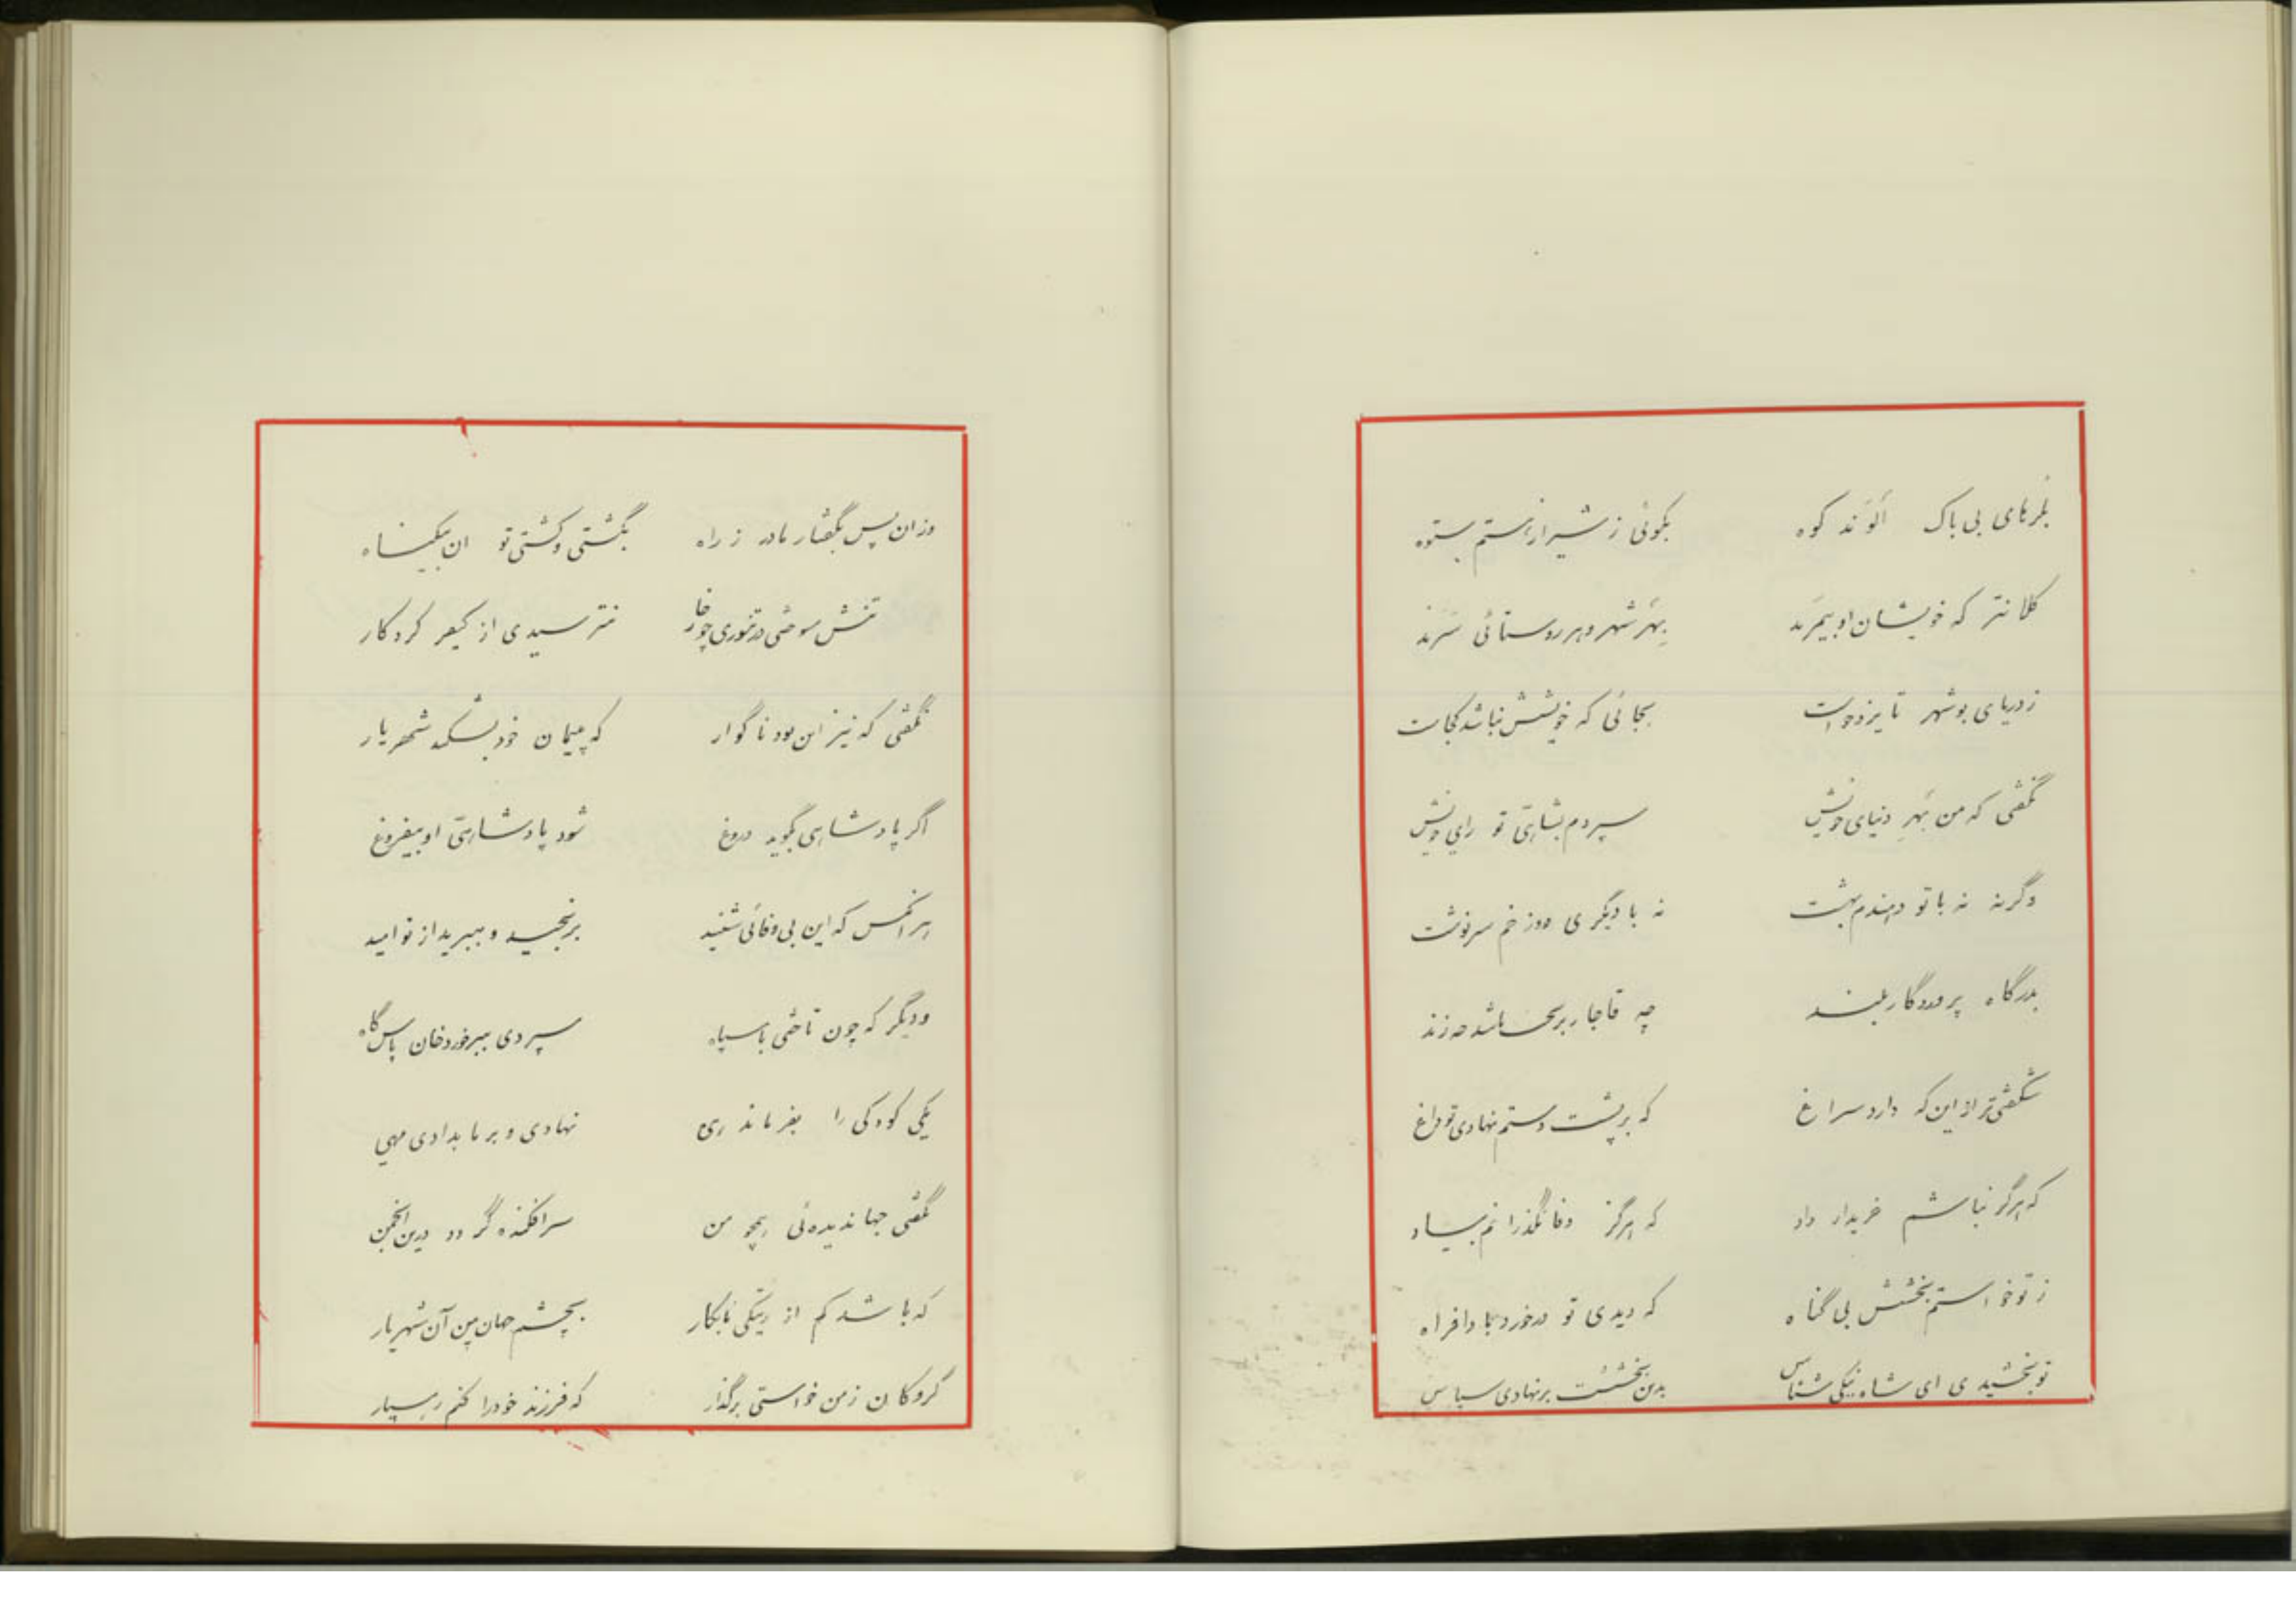 لرهای بی باک الوند کوه بگوئی ز شیراز رستم ستوه
کلانتر که خویشان او بیمرند بهر شهر و هر روستائی سرند
ز دریای بوشهر تا یزد خواست بجائی که خویشش نباشد کجاست
نگفتی که من بهر دنیای خویش سپردم بشاهیّ تو رای خویش
وگرنه نه با تو دهندم بهشت نه با دیگری دوزخم سرنوشت
بدرگاه پروردگار بلند چه قاجار بر تخت باشد چه زند
شگفتی‌تر از این که دارد سراغ که بر پشت دستم نهادی تو داغ
که هرگز نباشم خریدار داد که هرگز وفا نگذرانم بیاد
ز تو خواستم بخشش بی گناه که دیدی تو درخورد بادافراه
تو بخشیدی ای شاه نیکی شناس بدین بخششت برنهادی سپاس
وزان پس بگفتار مادر ز راه بگشتی و کشتی تو ان بیگناه
تنش سوختی در تنوری چو خار نترسیدی از کیفر کردگار
نگفتی که نیز این بود ناگوار که پیمان خود بشکند شهریار
اگر پادشاهی بگوید دروغ شود پادشاهیّ او بیفروغ
هر انکس که این بی وفائی شنید برنجید و ببرید از تو امید
و دیگر که چون تاختی با سپاه سپردی ببرخوردخان پاس گاه
یکی کودکی را بفرماندهی نهادی و بر ما بدادی مهی
نگفتی جهاندیده‌ئی همچو من سرافکنده گردد درین انجمن
که باشد کم از ریتکی نابکار بچشم جهان بین آن شهریار
گروکان ز من خواستی برگذار که فرزند خود را کنم رهسپار